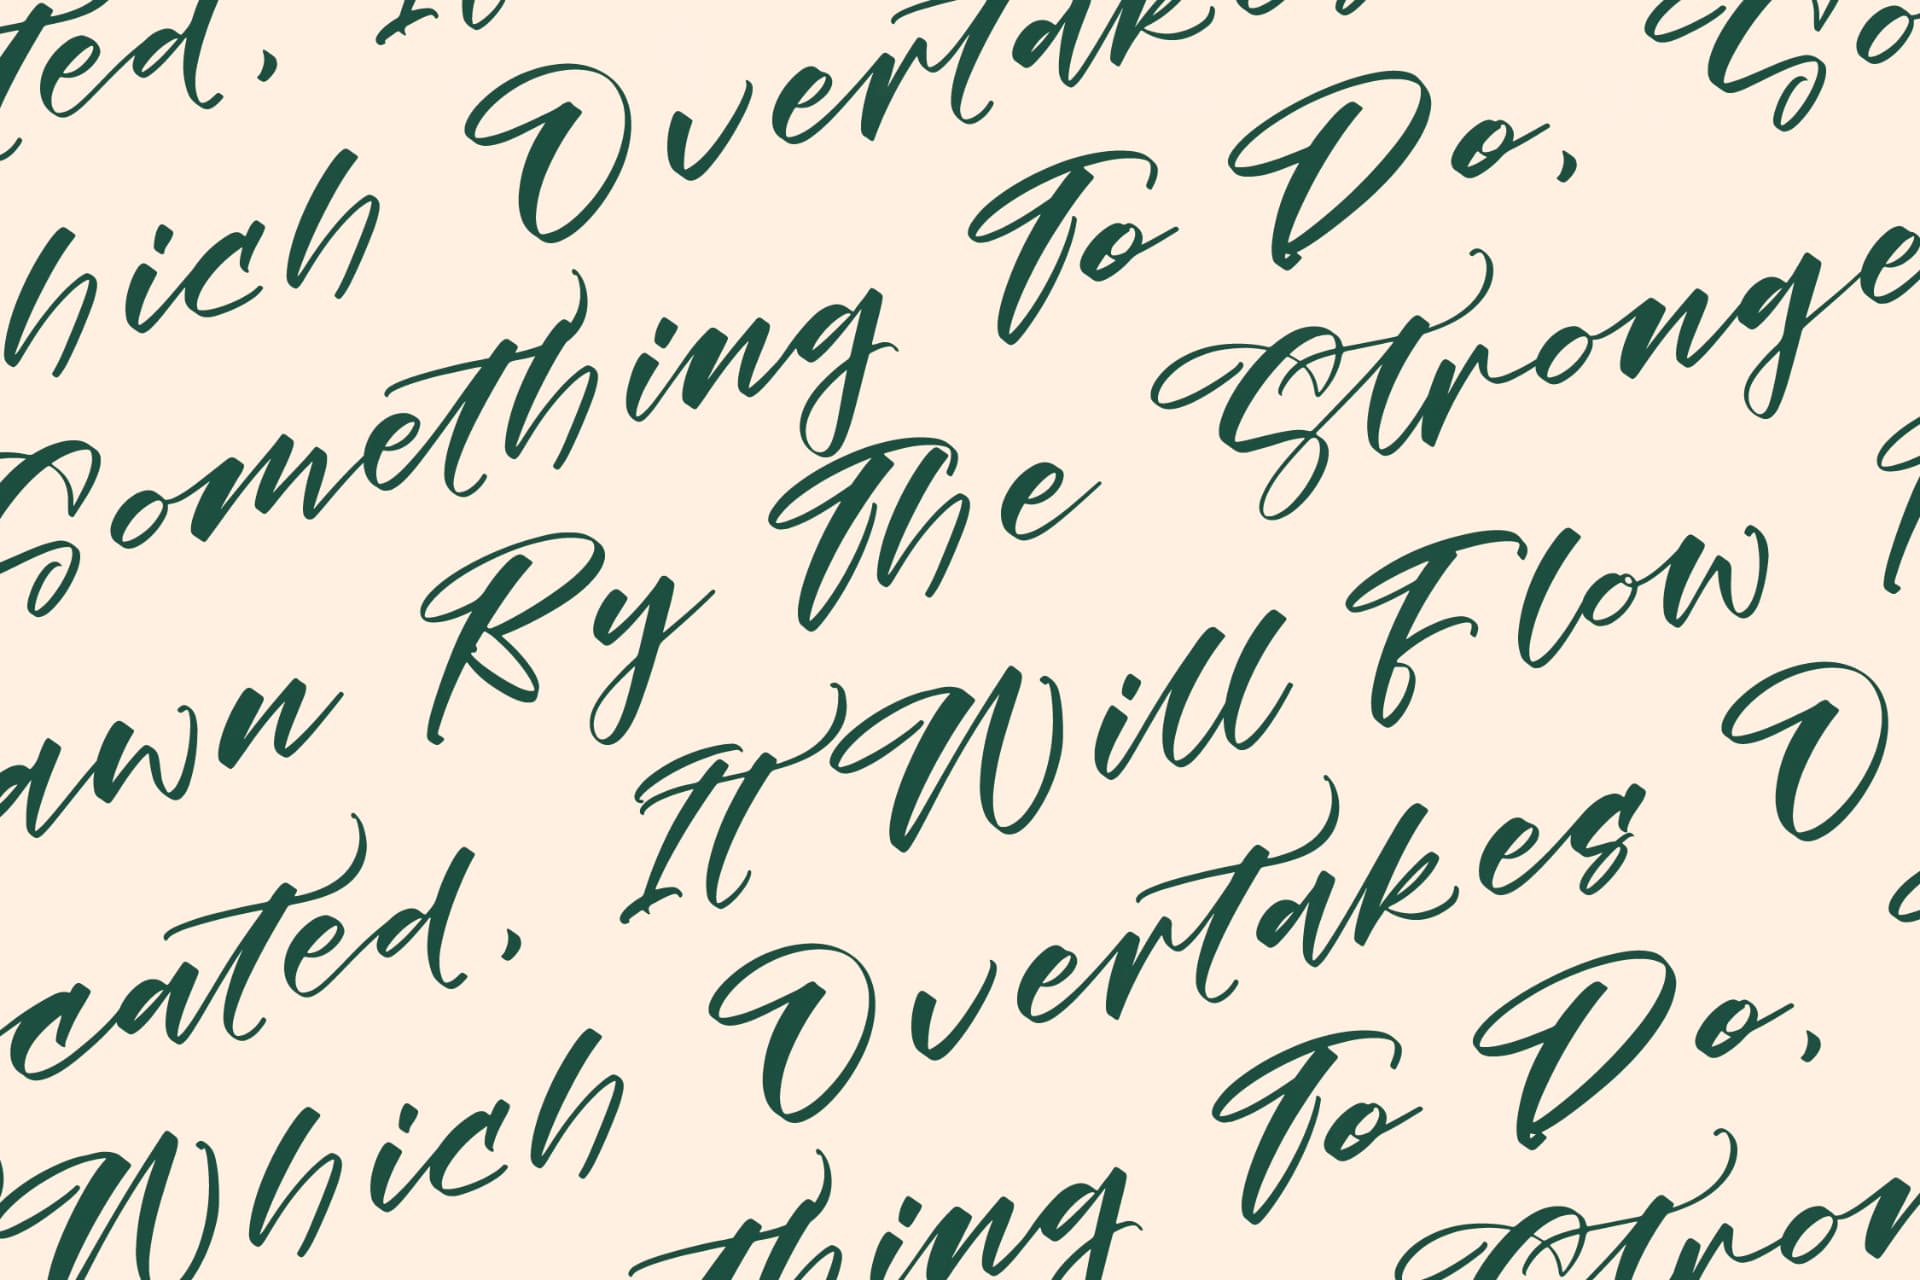 ted, It
hich Overtakes
Something To Do, So
awn By The Stronge
cated, It Will Flow
Which Overtakes O
thing To Do,
Stron